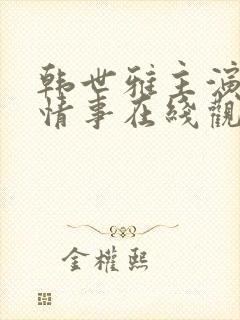 韩世雅主演
情事在线觀
金權熙